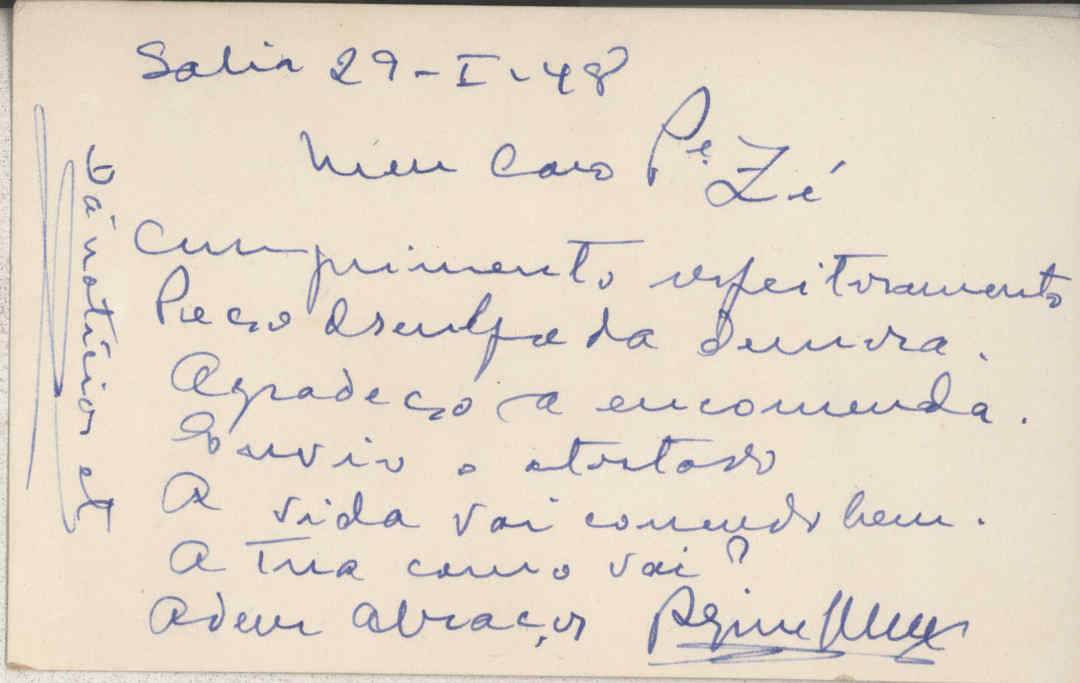 29-I-48
Meu caro Pe. Zé
Cumprimento respeitosamente
Peço desculpa da demora.
Agradeço a encomenda.
Envio o atestado
A vida vai correndo bem.
A Tua como vai?
Adeus abraços
Dá notícias